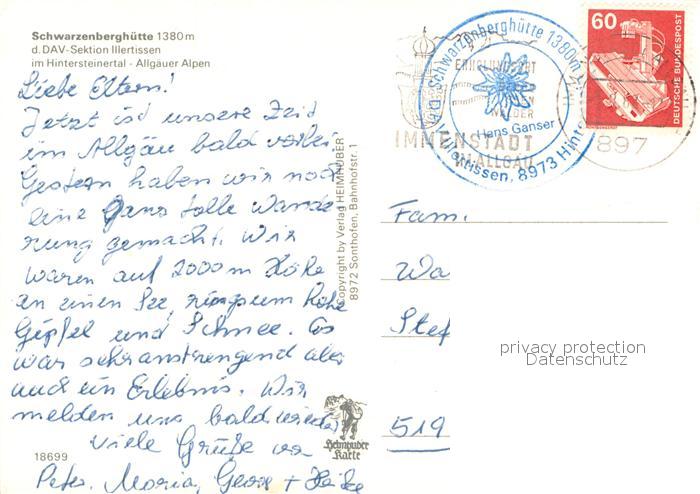 Schwarzenberghütte 1380m
d.DAV-Sektion Illertissen
im Hintersteinertal - Allgäuer Alpen
Liebe Eltern!
Jetzt ist unsere Zeit
im Allgäu bald vorbei.
Gestern haben wir noch
eine ganz tolle Wande-
rung gemacht. Wir
waren auf 2000 m Höhe
an einem See, ringsum hohe
Gipfel und Schnee. Es
war sehr anstrengend aber
auch ein Erlebnis. Wir
melden uns bald wieder
Viele Grüße von
Peter, Maria, Georg + Heike
18699
Copyright by Verlag HEIMHUBER
8972 Sonthofen, Bahnhofstr. 1
Heimhuber
Karte
Schwarzenberghütte 1380m
Hans Ganser
Illertissen, 8973 Hinter
IMMENSTADT
IM ALLGÄU
897
60
DEUTSCHE BUNDESPOST
Fam.
Wa
Stef
519
privacy protection
Datenschutz